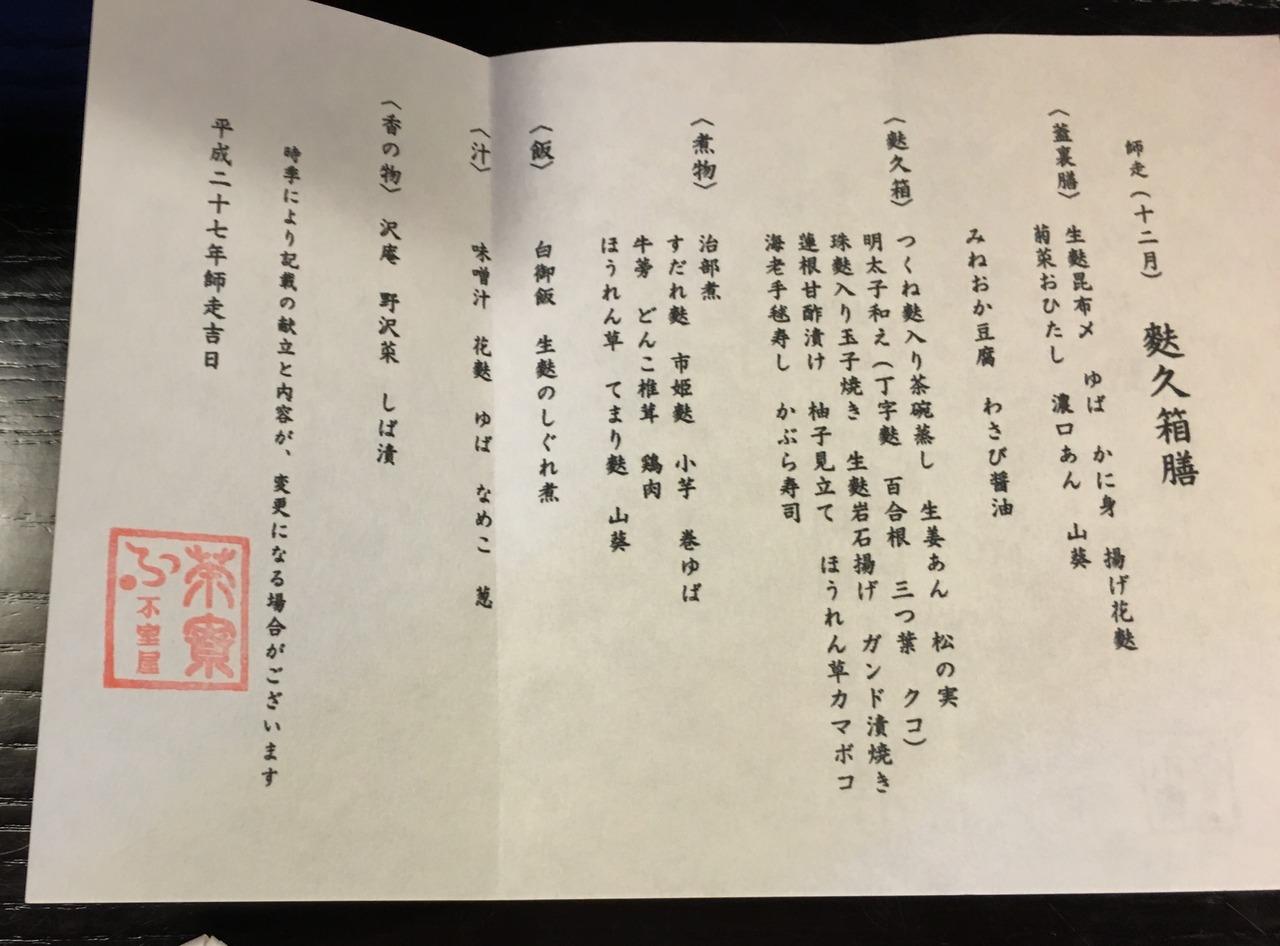 師走(十二月) 麩久箱膳
〈蓋裏膳〉 生麩昆布〆 ゆば かに身 揚げ花麩
菊菜おひたし 濃口あん 山葵
みねおか豆腐 わさび醤油
〈麩久箱〉 つくね麩入り茶碗蒸し 生姜あん 松の実
明太子和え(丁字麩 百合根 三つ葉 クコ)
珠麩入り玉子焼き 生麩岩石揚げ ガンド漬焼き
蓮根甘酢漬け 柚子見立て ほうれん草カマボコ
海老手毬寿し かぶら寿司
〈煮物〉 治部煮
すだれ麩 市姫麩 小芋 巻ゆば
牛蒡 どんこ椎茸 鶏肉
ほうれん草 てまり麩 山葵
〈飯〉 白御飯 生麩のしぐれ煮
〈汁〉 味噌汁 花麩 ゆば なめこ 葱
〈香の物〉 沢庵 野沢菜 しば漬
時季により記載の献立と内容が、変更になる場合がございます
平成二十七年師走吉日
茶寮
ふ
不室屋